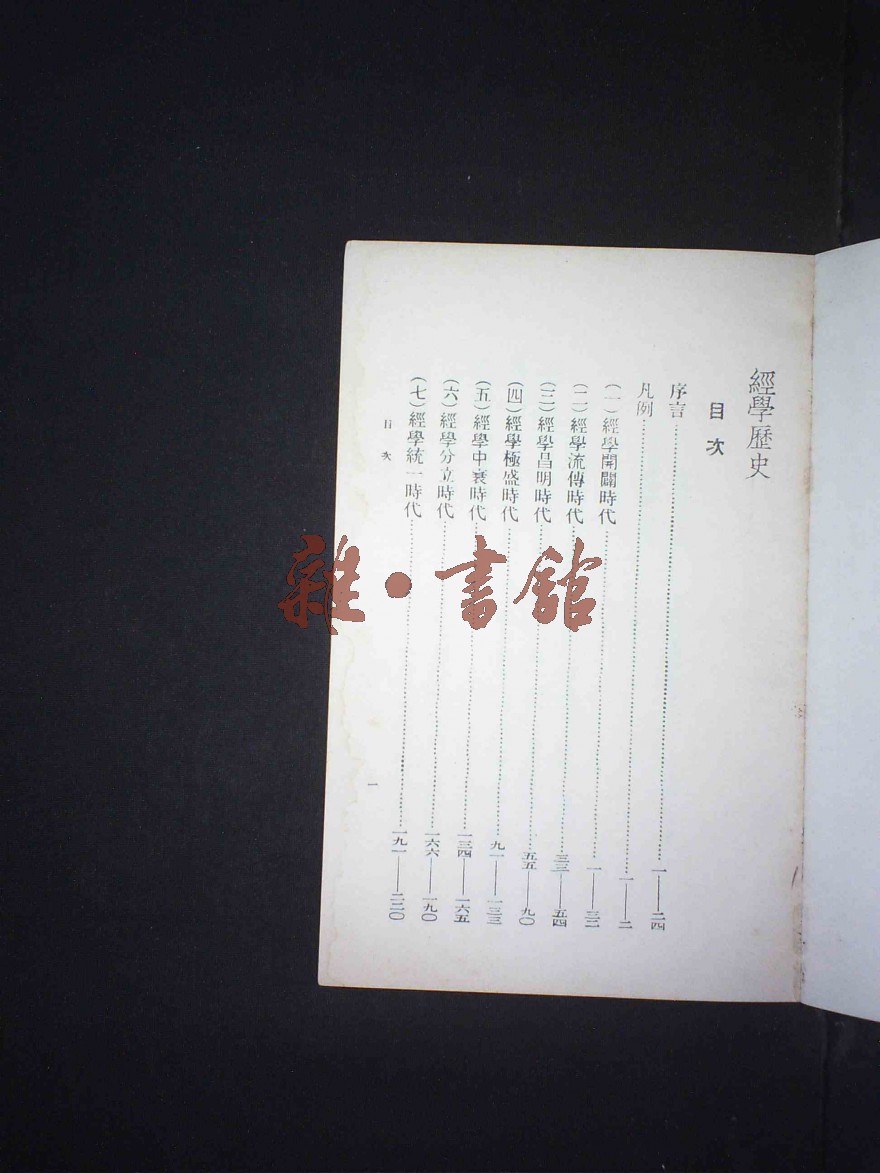 經學歷史
目次
序言……一——二四
凡例……一——二
(一)經學開闢時代……一——三二
(二)經學流傳時代……三三——五四
(三)經學昌明時代……五五——九〇
(四)經學極盛時代……九一——一三三
(五)經學中衰時代……一三四——一六五
(六)經學分立時代……一六六——一九〇
(七)經學統一時代……一九一——二二〇
目次
一
雜·書館